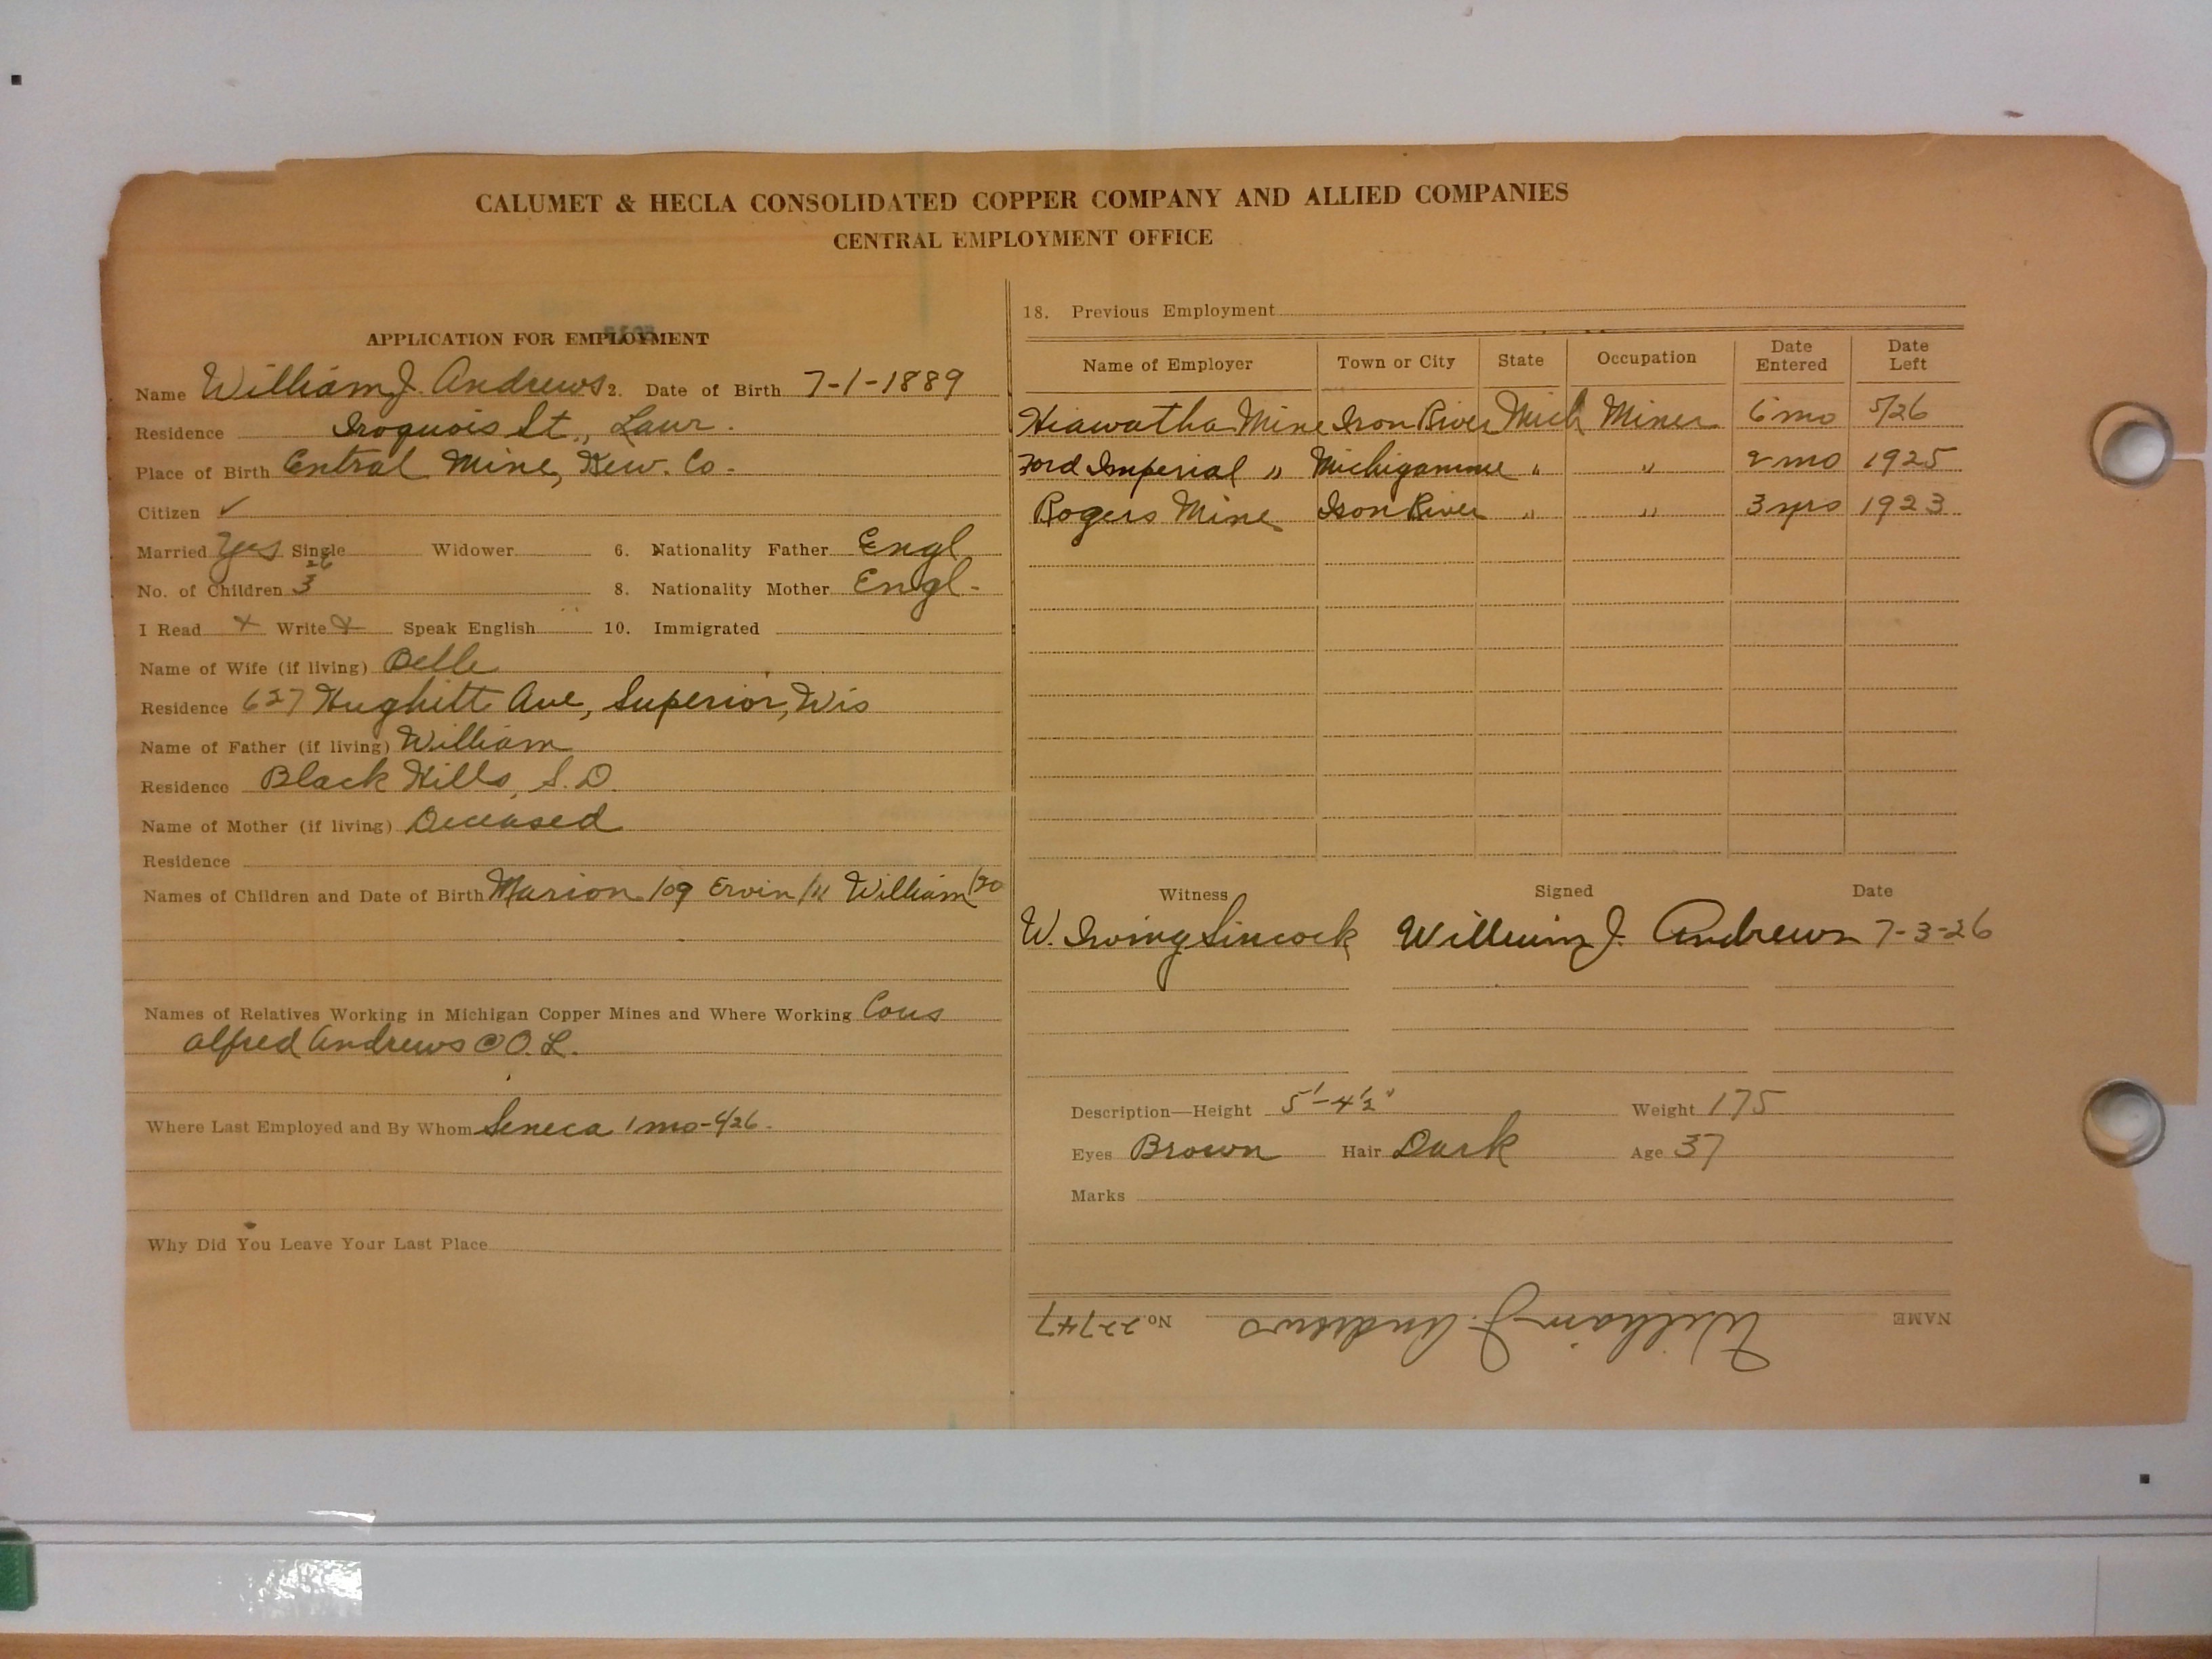 CALUMET & HECLA CONSOLIDATED COPPER COMPANY AND ALLIED COMPANIES
CENTRAL EMPLOYMENT OFFICE
APPLICATION FOR EMPLOYMENT
Name William J. Andrews 2. Date of Birth 7-1-1889
Residence Iroquois St., Laur.
Place of Birth Central Mine, Kew. Co.
Citizen ✓
Married Yes Single Widower 6. Nationality Father Engl
26
No. of Children 3 8. Nationality Mother Engl.
I Read x Write x Speak English 10. Immigrated
Name of Wife (if living) Belle
Residence 627 Hughitt Ave, Superior, Wis
Name of Father (if living) William
Residence Black Hills, S.D.
Name of Mother (if living) Deceased
Residence
Names of Children and Date of Birth Marion /09 Ervin /11 William /20
Names of Relatives Working in Michigan Copper Mines and Where Working Cous
Alfred Andrews @ O.L.
Where Last Employed and By Whom Seneca 1 mo-6/26.
Why Did You Leave Your Last Place
18. Previous Employment
Name of Employer Town or City State Occupation Date Entered Date Left
Hiawatha Mine Iron River Mich Miner 6 mo 5/26
Ford Imperial " Michigamme " " 2 mo 1925
Rogers Mine Iron River " " 3 yrs 1923
Witness Signed Date
W. Irving Sincock William J. Andrews 7-3-26
Description—Height 5'-4½" Weight 175
Eyes Brown Hair Dark Age 37
Marks
NAME William J. Andrews No. 22747